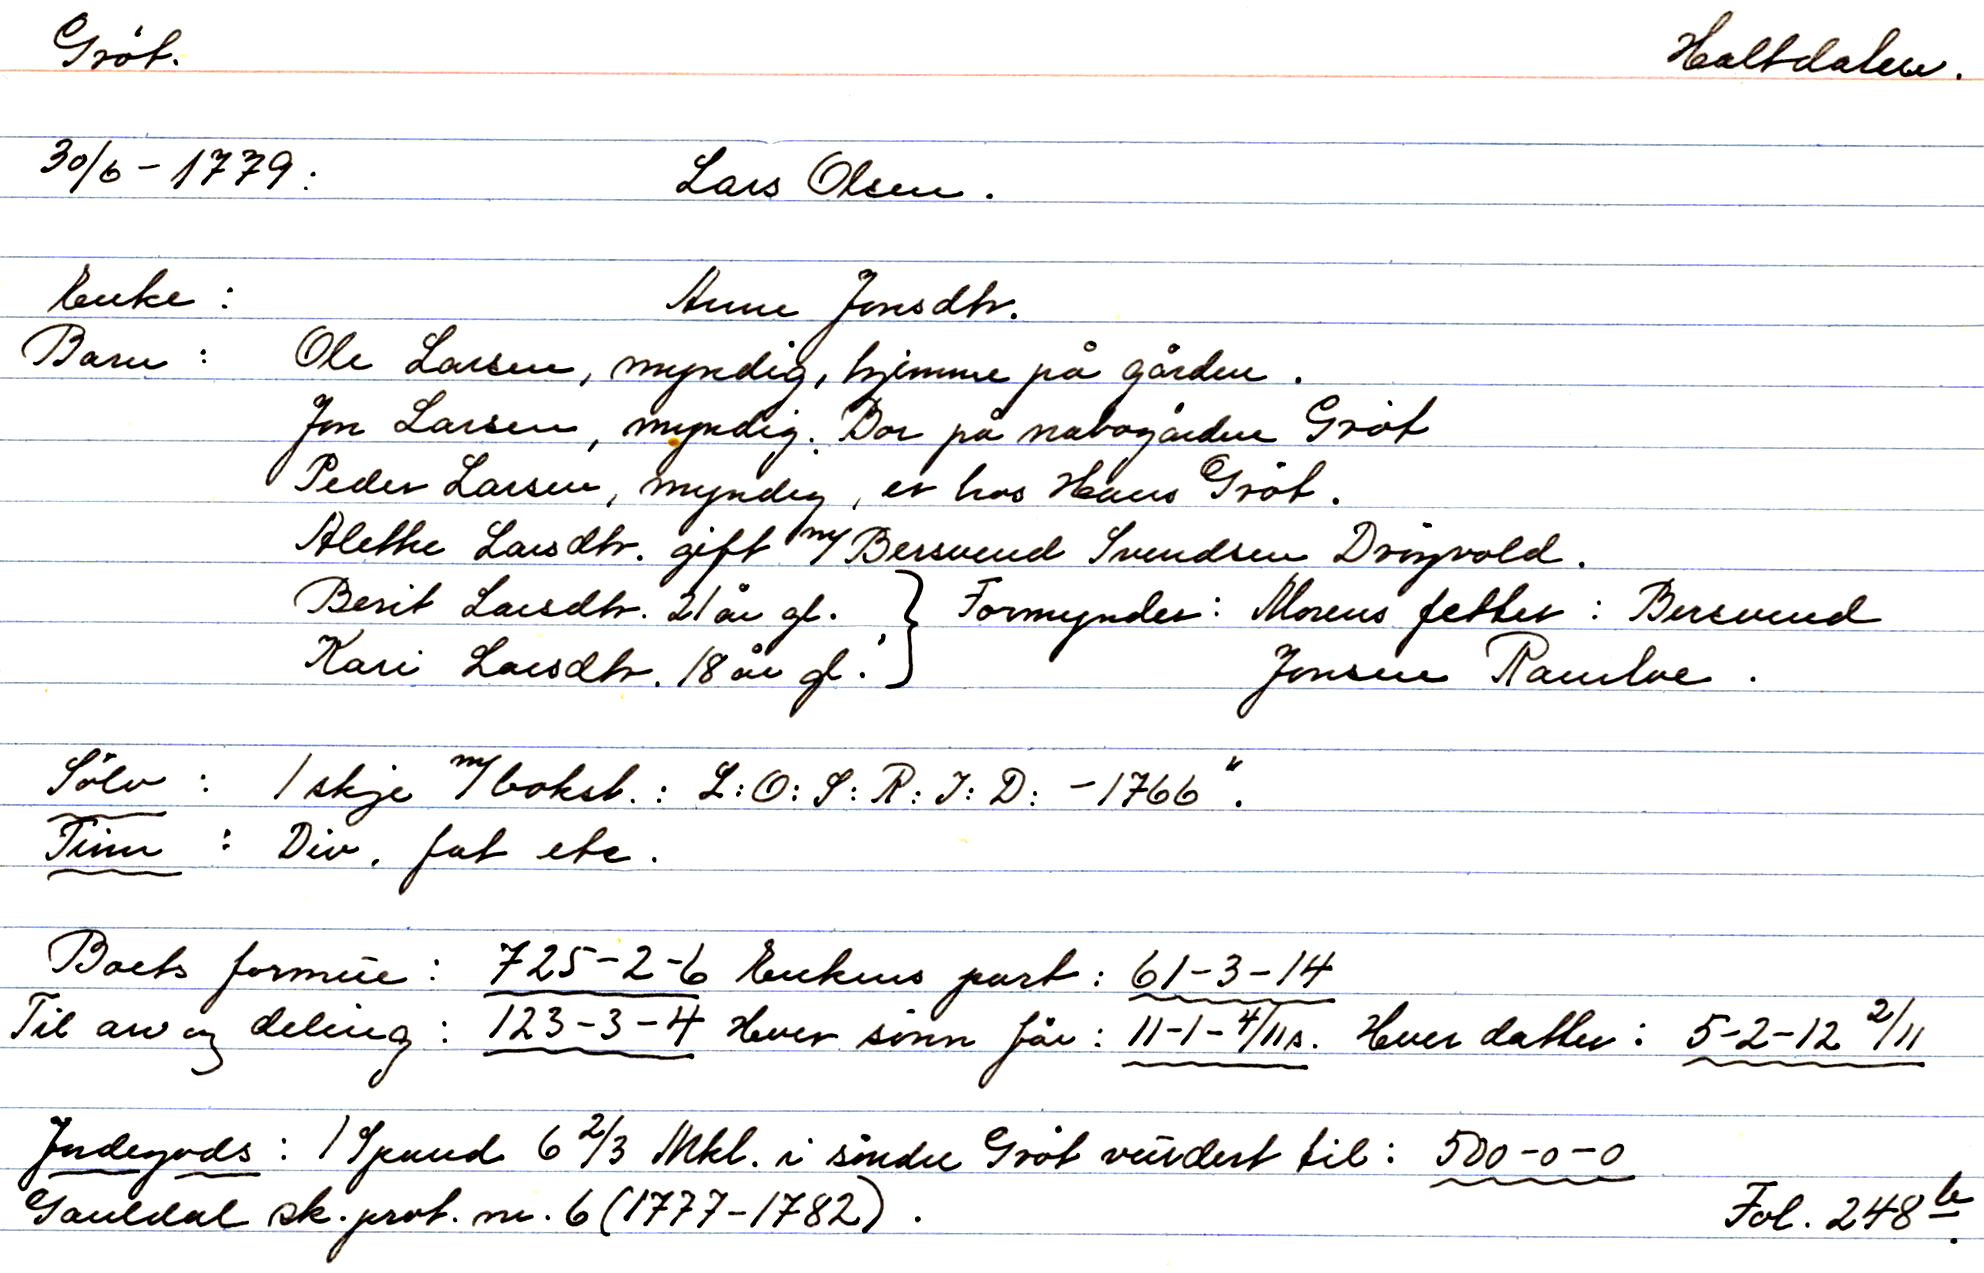 Gröt. Haltdalen.
30/6 - 1779: Lars Olsen.
Enke: Anne Jonsdtr.
Barn: Ole Larsen, myndig, hjemme på gården.
Jon Larsen, myndig. Bor på nabogården Gröt
Peder Larsen, myndig, er hos Hans Gröt.
Alethe Larsdtr. gift m/ Bersvend Svendsen Drøyvold.
Berit Larsdtr. 21 år gl. } Formynder: Morens fetter: Bersvend
Kari Larsdtr. 18 år gl. Jonsen Ramloe.
Sölv: 1 skje m/ bokst.: L:O:S:R:I:D: -1766".
Tinn: Div. fat etc.
Boets formue: 725-2-6 Enkens part: 61-3-14
Til arv og deling: 123-3-4 Hver sönn får: 11-1-4/11 s. Hver datter: 5-2-12 2/11
Jordegods: 1 Spand 6 2/3 Mkl. i söndre Gröt vurdert til: 500-0-0
Gauldal sk. prot. nr. 6 (1777-1782). Fol. 248 b.